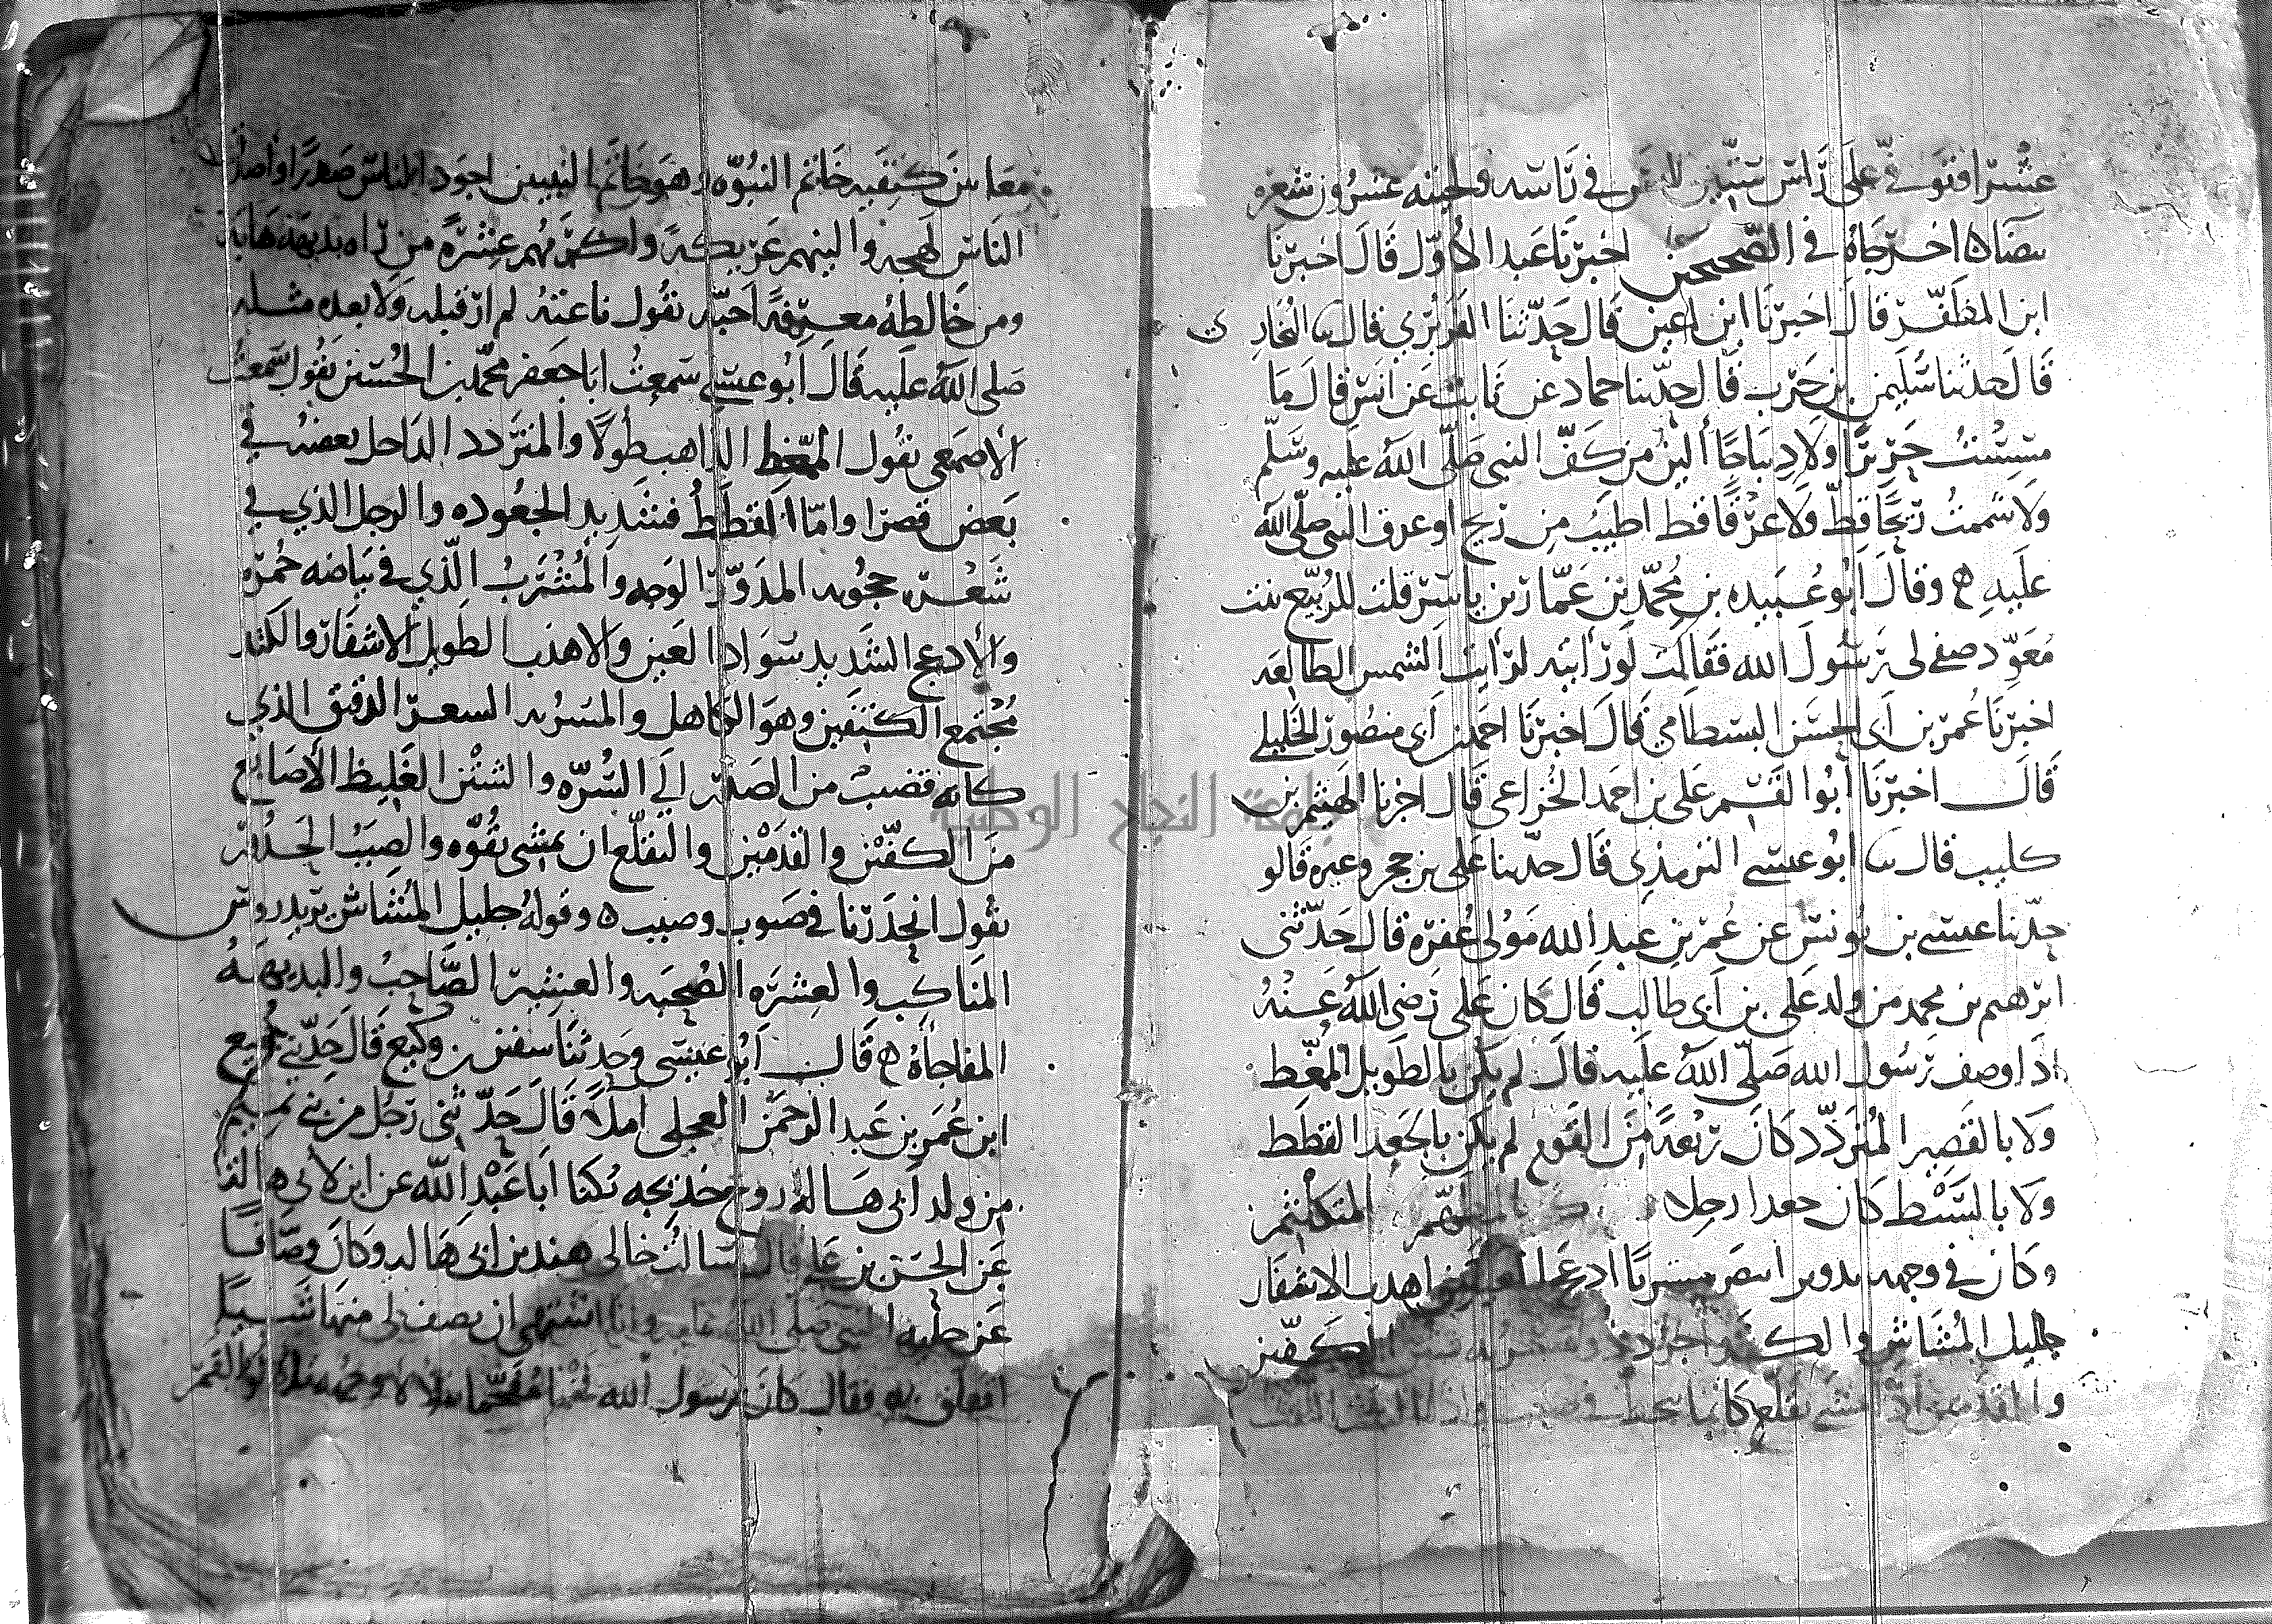 عشرا فتوفي على رأس ستين ليس في رأسه ولحيته عشرون شعره
بيضاء اخرجاه في الصحيحين اخبرنا عبد الأول قال اخبرنا
ابن المظفر قال اخبرنا ابن اعين قال حدثنا الفربري قال ثنا البخاري
قال حدثنا سليمن بن حرب قال حدثنا حماد عن ثابت عن انس قال ما
مسست حريرًا ولا ديباجًا ألين من كف النبي صلى الله عليه وسلم
ولا شممت ريحًا قط ولا عرقًا قط اطيب من ريح او عرق النبي صلى الله
عليه ه وقال أبو عبيده بن محمد بن عمار بن ياسر قلت للربيع بنت
معوذ صفي لي رسول الله فقالت لو رأيته لرأيت الشمس الطالعه
اخبرنا عمر بن أبي الحسن البسطامي قال اخبرنا احمد بن أبي منصور الخليلي
قال اخبرنا أبو القسم علي بن احمد الخزاعي قال اخبرنا الهيثم بن
كليب قال ثنا ابو عيسى الترمذي قال حدثنا علي بن حجر وغيره قالو
حدثنا عيسى بن يونس عن عمر بن عبد الله مولى غفره قال حدثني
ابرهيم بن محمد من ولد علي بن أبي طالب قال كان علي رضي الله عنه
اذا وصف رسول الله صلى الله عليه قال لم يكن بالطويل الممغط
ولا بالقصير المتردد كان ربعة من القوم لم يكن بالجعد القطط
ولا بالسبط كان جعدا رجلا بالمطهم المكلثم
وكان في وجهه تدوير ابيض مشربًا ادعج العينين اهدب الاشفار
جليل المشاش والكتد اجرد ذو مسربه شثن الكفين
والقدمين اذا مشى تقلع كانما ينحط في صبب واذا التفت التفت
معا بين كتفيه خاتم النبوه وهو خاتم النبيين اجود الناس صدرًا واصدق
الناس لهجه والينهم عريكة واكرمهم عشرةً من رآه بديهة هابه
ومن خالطه معرفةً احبه يقول ناعته لم ار قبله ولا بعده مثله
صلى الله عليه قال ابو عيسى سمعت ابا جعفر محمد بن الحسين يقول سمعت
الأصمعي يقول الممغط الذاهب طولًا والمتردد الداخل بعضه في
بعض قصرا واما القطط فشديد الجعوده والرجل الذي في
شعره حجونه المدور الوجه والمشرب الذي في بياضه حمره
والأدعج الشديد سواد العين والاهدب الطويل الاشفار والكتد
مجتمع الكتفين وهو الكاهل والمسربه الشعر الدقيق الذي
كانه قضيب من الصدر إلى السره والشثن الغليظ الأصابع
من الكفين والقدمين والتقلع ان يمشي بقوه والصبب الحدور
يقول انحدرنا في صبوب وصبب ه وقوله جليل المشاش يريد روس
المناكب والعشره الصحبه والعشير الصاحب والبديهه
المفاجأة ه قال ابو عيسى وحدثنا سفين بن وكيع قال حدثني جميع
ابن عمر بن عبد الرحمن العجلي املاءً قال حدثني رجل من بني تميم
من ولد أبي هاله زوج خديجه يكنا أبا عبد الله عن ابن لأبي هاله
عن الحسن بن علي قال سألت خالي هند بن ابي هاله وكان وصافًا
عن حليه النبي صلى الله عليه وانا اشتهي ان يصف لي منها شيئًا
اتعلق به فقال كان رسول الله فخما مفخما يتلألأ وجهه تلألؤ القمر